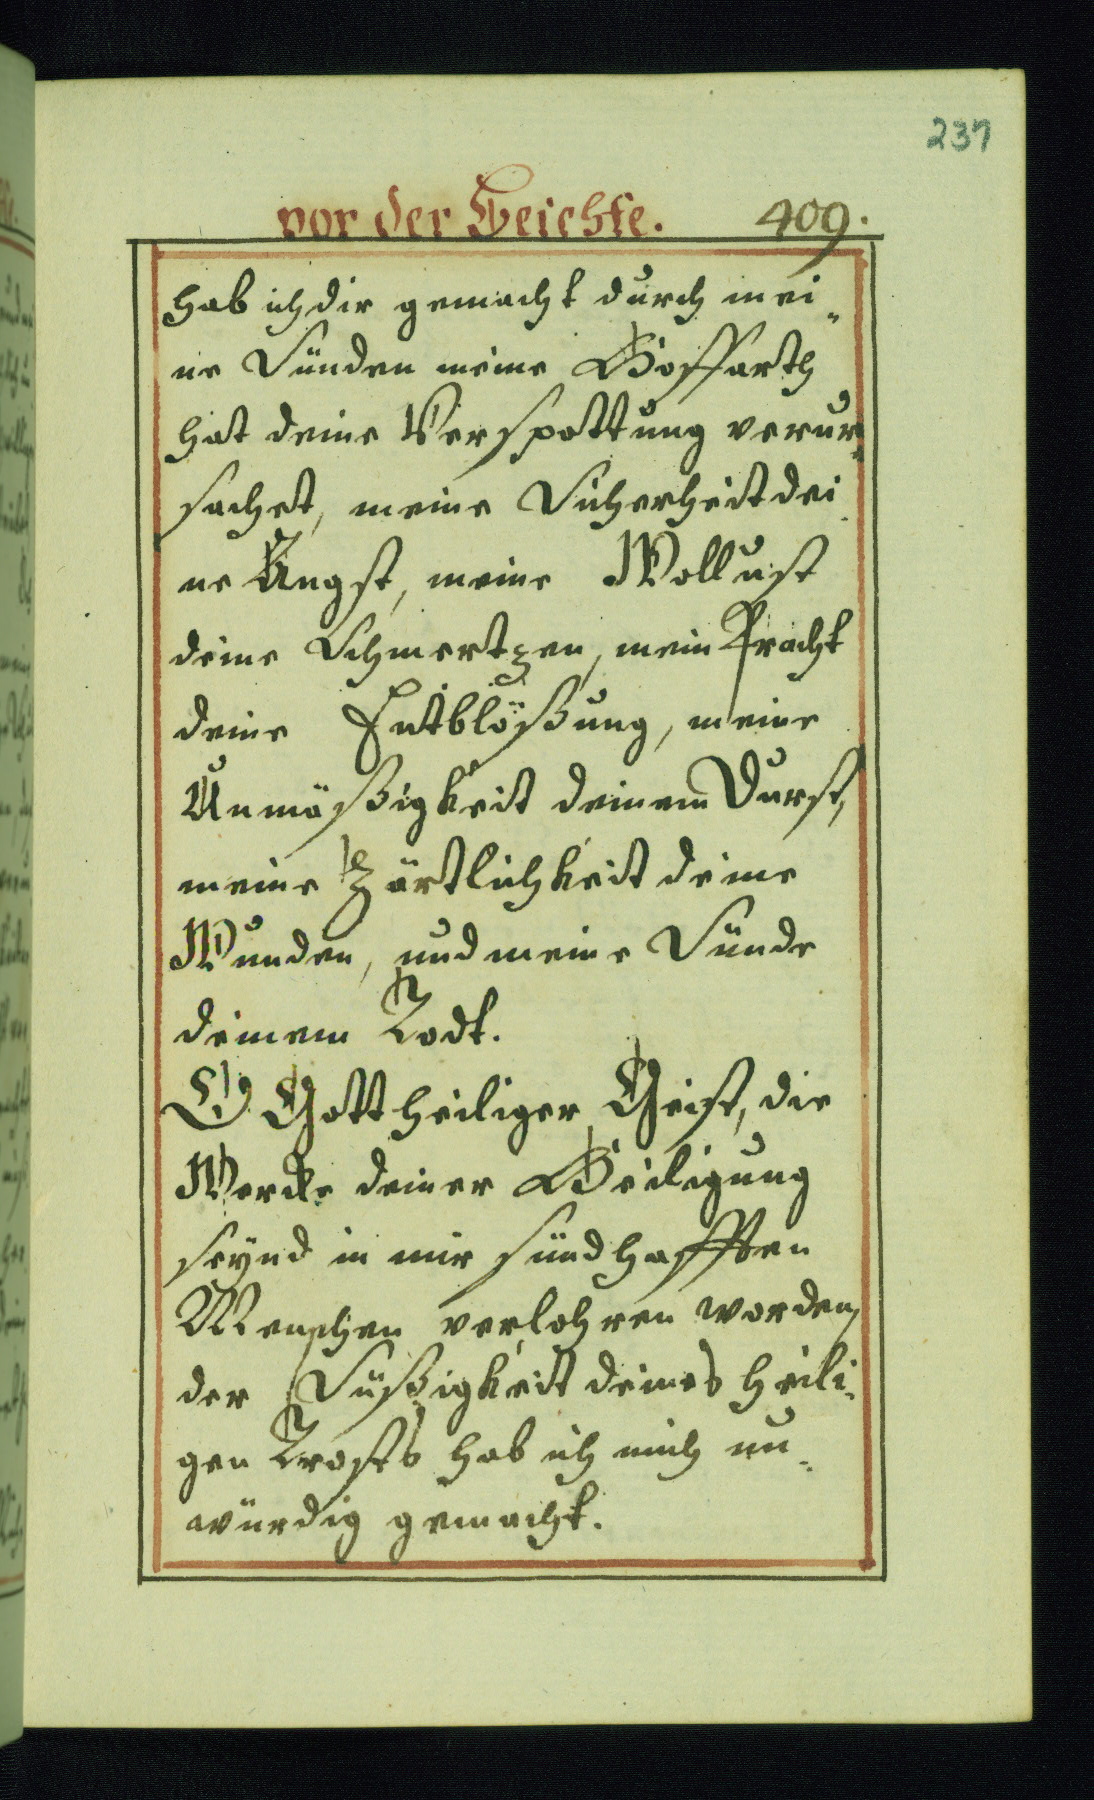 237
vor der Beichte. 409.
hab ich dir gemacht durch mei„
ne Sünden meine Hoffarth
hat deine Verspottung verur„
sachet, meine Sicherheit dei
ne Angst, meine Wollust
deine Schmertzen, mein Pracht
deine Entblößung, meine
Unmäßigkeit deinem Durst,
meine Zärtlichkeit deine
Wunden, und meine Sünde
deinem Todt.
O Gott heiliger Geist, die
Wercke deiner Heiligung
seynd in mir sündhafften
Menschen verlohren worden,
der Süßigkeit deines heili„
gen Trosts hab ich mich un„
würdig gemacht.